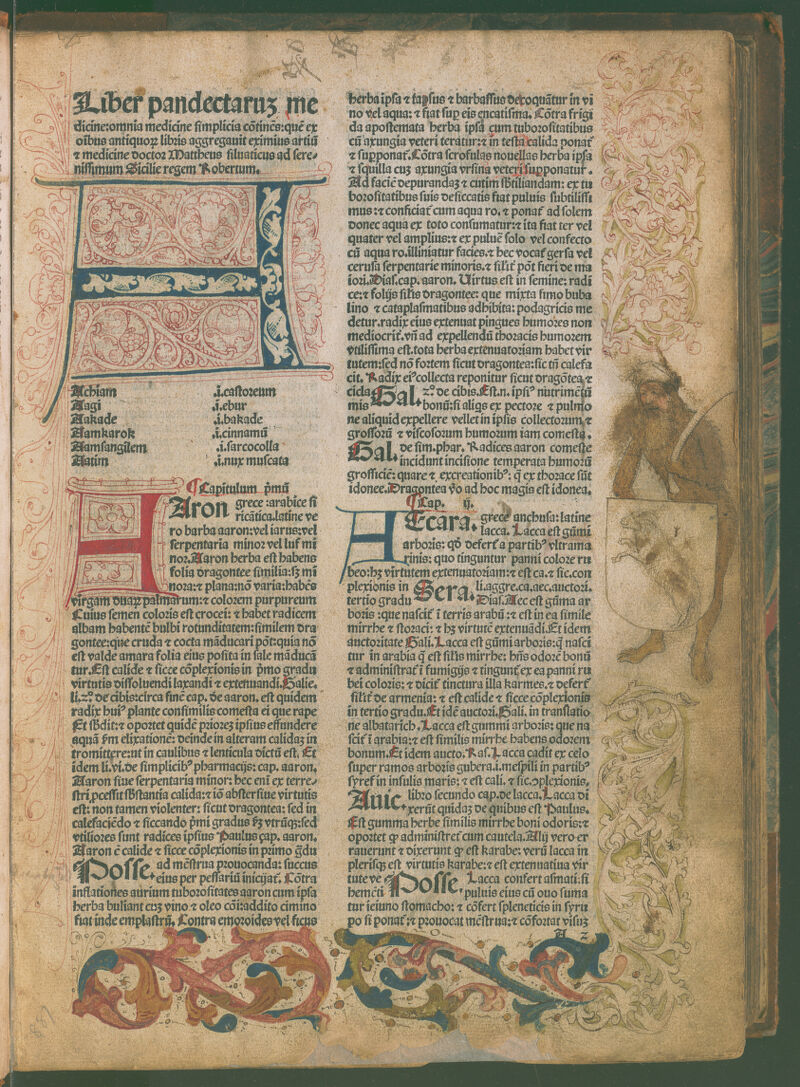 Liber pandectaruʒ me
dicine:omnia medicine simplicia cōtinēs:quē ex
oībus antiquoꝝ libris aggregauit eximius artiū
⁊ medicine doctor Mattheus siluaticus ad sere⸗
nissimum Sicilie regem Robertum.
A
Achiam .i.castoreum
Aagi .i.ebur
Aakade .i.bakade
Aamkarok .i.cinnamū
Aamsangilem .i.sarcocolla
Aatim .i.nux muscata
¶Capitulum pͫmū
AAron grece :arabice si
ricātica.latine ve
ro barba aaron:vel iarus:vel
serpentaria minor vel luf mī
nor.Aaron herba est habens
folia dragontee similia:sʒ mī
nora:⁊ plana:nō varia:habēs
virgam duaꝝ palmarum:⁊ colorem purpureum
Cuius semen coloris est crocei: ⁊ habet radicem
albam habentē bulbi rotunditatem:similem dra
gontee:que cruda ⁊ cocta māducari pōt:quia nō
est valde amara folia eius posita in sale māducā
tur.Est calide ⁊ sicce cōplexionis in pͫmo gradu
virtutis dissoluendi laxandi ⁊ extenuandi.Galie.
li.2.º de cibis:circa finē cap. de aaron. est quidem
radix huiꝰ plante consimilis comesta ei que rape
Et sbdit:⁊ oportet quidē priorez ipsius effundere
aquā pͫm elixationē: deinde in alteram calidaʒ in
tromittere:ut in caulibus ⁊ lenticula dictū est. Et
idem li.vi.de simplicibꝰ pharmacijs: cap. aaron.
Aaron siue serpentaria minor: hec enī ex terre⸗
stri pcessit sbstantia calida:⁊ iō abstersiue virtutis
est: non tamen violenter: sicut dragontea: sed in
calefaciēdo ⁊ siccando pͫmi gradus sʒ vtrūqʒ:sed
vtiliores sunt radices ipsius Paulus cap. aaron.
Aaron ē calide ⁊ sicce cōplexionis in primo gᷓdu
Posse. ad mēstrua prouocanda: succus
eius per pessariū inicijat. Cōtra
inflationes aurium tuborositates aaron cum ipsa
herba buliant cuʒ vino ⁊ oleo cōi:addito cimino
fiat inde emplastrū. Contra emoroides vel ficus
herba ipsa ⁊ tapsus ⁊ barbassus decoquātur in vi
no vel aqua: ⁊ fiat sup eis encatisma. Cōtra frigi
da apostemata herba ipsa cum tuborositatibus
cū axungia veteri teratur:⁊ in testa calida ponat᷑
⁊ supponat᷑.Cōtra scrofulas nouellas herba ipsa
⁊ squilla cuʒ axungia vrsina veteri supponatur.
Ad faciē depurandaʒ ⁊ cutim sbtiliandam: ex tu
borositatibus suis desiccatis fiat puluis subtilissi
mus:⁊ conficiat᷑ cum aqua ro. ⁊ ponat᷑ ad solem
donec aqua ex toto consumatur:⁊ ita fiat ter vel
quater vel amplius:⁊ ex puluē solo vel confecto
cū aqua ro.illiniatur facies.⁊ hec vocat᷑ gersa vel
cerusa serpentarie minoris.⁊ silīt᷑ pōt fieri de ma
iori.Dias.cap. aaron. Virtus est in semine: radi
ce:⁊ folijs silis dragontee: que mixta fimo buba
lino ⁊ cataplasmatibus adhibita: podagricis me
detur.radix eius extenuat pingues humores non
mediocrit᷑.vñ ad expellendū thoracis humorem
vtilissima est.tota herba extenuatoriam habet vir
tutem:sed nō fortem sicut dragontea:sic tñ calefa
cit. Radix eiꝰ collecta reponitur sicut dragōtea ⁊
cida Gal. 2.º de cibis.Est.n. ipsiꝰ nutrimētū
mis bonū:si aliqs ex pectore ⁊ pulmo
ne aliquid expellere vellet in ipsis collectorum ⁊
grossorū ⁊ viscosorum humorum iam comesta.
Gal. de sim.phar. Radices aaron comeste
incidunt incisione temperata humorū
grossiciē: quare ⁊ excreationibꝰ: q̄ ex thorace sūt
idonee.Dragontea ṽo ad hoc magis est idonea.
¶Cap. ij.
AEcara. grece anchusa: latine
lacca. Lacca est gūmi
arboris: qd̄ defert᷑ a partibꝰ vltrama
rinis: quo tinguntur panni colore ru
beo:hʒ virtutem extenuatoriam:⁊ est ca.⁊ sic.con
plexionis in Sera. li.aggre.ca.aec.auctori.
tertio gradu Dias.Aec est gūma ar
boris :que nascit᷑ ī terris arabū:⁊ est in ea simile
mirrhe ⁊ storaci: ⁊ hʒ virtutē extenuādi.Et idem
auctoritate Gali.Lacca est gūmi arboris:q̄ nasci
tur in arabia q̄ est silīs mirrhe: hñs odorē bonū
⁊ administrat᷑ ī fumigijs ⁊ tingunt᷑ ex ea panni ru
bei coloris: ⁊ dicit᷑ tinctura illa karmes.⁊ defert᷑
silīt᷑ de armenia: ⁊ est calide ⁊ sicce cōplexionis
in tertio gradu.Et idē auctori.Gali. in translatio
ne albatarich.Lacca est gummi arboris: que na
scit᷑ ī arabia:⁊ est similis mirrhe habens odorem
bonum.Et idem aucto.Ras.Lacca cadit ex celo
super ramos arboris gubera.i.mespili in partibꝰ
syref in insulis maris: ⁊ est cali. ⁊ sic.ꝯplexionis.
Auic. libro secundo cap.de lacca.Lacca di
xerūt quidaʒ de quibus est Paulus.
Est gumma herbe similis mirrhe boni odoris:⁊
oportet ꝙ administret᷑ cum cautela.Alij vero er
rauerunt ⁊ dixerunt ꝙ est karabe: verū lacca in
plerisqʒ est virtutis karabe:⁊ est extenuatiua vir
tute ve Posse. Lacca confert asmati:si
hemēti puluis eius cū ouo suma
tur ieiuno stomacho: ⁊ cōfert spleneticis in syru
po si ponat᷑:⁊ prouocat mēstrua:⁊ cōfortat visuʒ
A 2